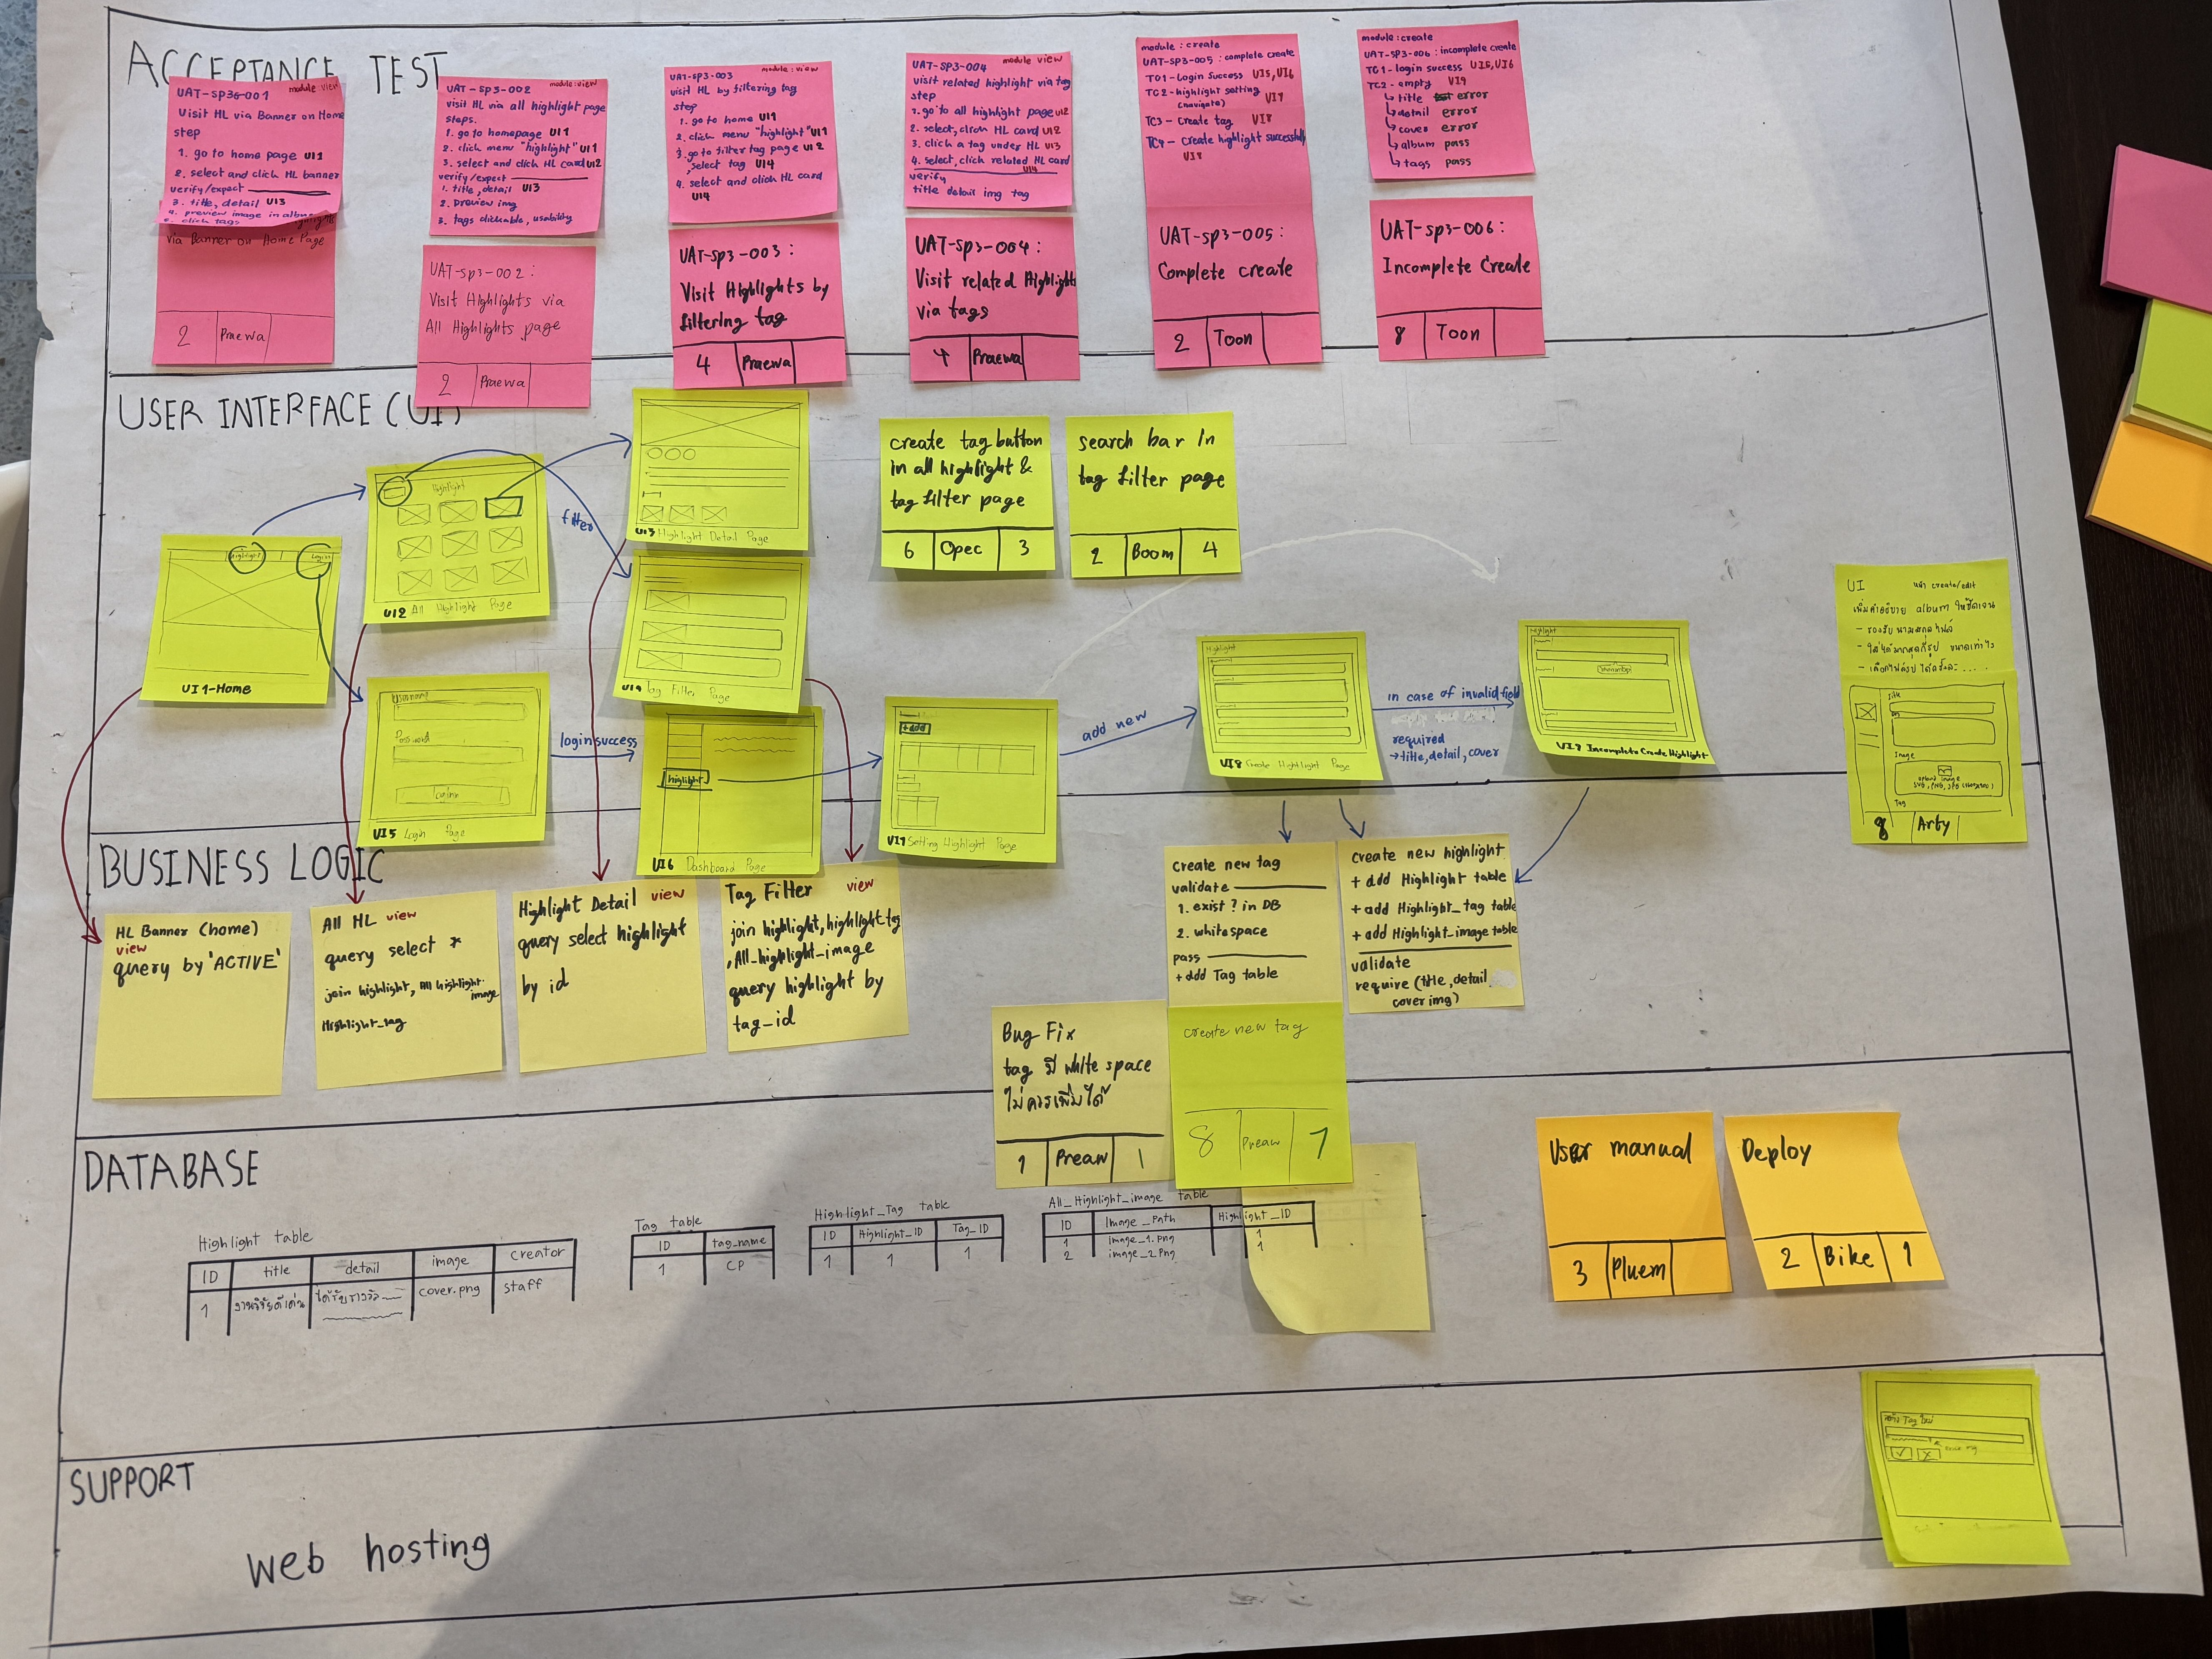 ACCEPTANCE TEST
module: view
UAT-SP36-001
Visit HL via Banner on Home
step
1. go to home page UI1
2. select and click HL banner
verify/expect
3. title, detail UI3
4. preview image in album
5. click tags
via Banner on Home Page
2 Praewa
module: view
UAT-SP3-002
visit HL via all highlight page
steps.
1. go to homepage UI1
2. click menu "highlight" UI1
3. select and click HL card UI2
verify/expect
1. title, detail UI3
2. preview img
3. tags clickable, usability
UAT-SP3-002:
Visit Highlights via
All Highlights page
2 Praewa
module: view
UAT-SP3-003
visit HL by filtering tag
step
1. go to home UI1
2. click menu "highlight" UI1
3. go to filter tag page UI2
, select tag UI4
4. select and click HL card
UI4
UAT-SP3-003:
Visit Highlights by
filtering tag
4 Praewa
UAT-SP3-004 module view
visit related highlight via tag
step
1. go to all highlight page UI2
2. select, click HL card UI2
3. click a tag under HL UI3
4. select, click related HL card
UI4
verify
title detail img tag
UAT-SP3-004:
Visit related Highlights
via tags
4 Praewa
module: create
UAT-SP3-005: complete create
TC1-Login Success UI5, UI6
TC2-highlight setting UI7
(navigate)
TC3- Create tag UI8
TC4- Create highlight successfully
UI8
UAT-SP3-005:
Complete create
2 Toon
module: create
UAT-SP3-006: incomplete create
TC1-login success UI5, UI6
TC2-empty UI9
↳ title error
↳ detail error
↳ cover error
↳ album pass
↳ tags pass
UAT-SP3-006:
Incomplete Create
8 Toon
USER INTERFACE (UI)
Highlight Login
UI1-Home
Highlight
UI2 All Highlight Page
filter
UI3 Highlight Detail Page
UI4 Tag Filter Page
create tag button
in all highlight &
tag filter page
6 Opec 3
search bar in
tag filter page
2 Boom 4
Username
Password
Login
UI5 Login Page
login success
highlight
UI6 Dashboard Page
+add
UI7 Setting Highlight Page
add new
Highlight
UI8 Create Highlight Page
in case of invalid field
required
→title, detail, cover
Highlight
UI9 Incomplete Create Highlight
UI หน้า create/edit
เพิ่มคำอธิบาย album ให้ชัดเจน
- รองรับนามสกุลไฟล์
- ใส่ได้มากสุดกี่รูป ขนาดเท่าไร
Title
Image
upload image
Tag
8 Arty
BUSINESS LOGIC
HL Banner (home)
view
query by 'ACTIVE'
All HL view
query select *
join highlight, All highlight
image
Highlight_tag
Highlight Detail view
query select highlight
by id
Tag Filter view
join highlight, highlight tag
, All_highlight_image
query highlight by
tag_id
create new tag
validate
1. exist? in DB
2. whitespace
pass
+ add Tag table
create new highlight
+ add Highlight table
+ add Highlight_tag table
+ add Highlight_image table
validate
require (title, detail
cover img)
Bug Fix
tag มี white space
ไม่ควรเพิ่มได้
1 Preaw 1
create new tag
8 Preaw 7
DATABASE
Highlight table
ID title detail image creator
1 งานวิจัยดีเด่น ได้รับรางวัล cover.png staff
Tag table
ID tag_name
1 CP
Highlight_Tag table
ID Highlight_ID Tag_ID
1 1 1
All_Highlight_image table
ID Image_Path Highlight_ID
1 image_1.png 1
2 image_2.png 1
User manual
3 Pluem
Deploy
2 Bike 1
SUPPORT
สร้าง Tag ใหม่
web hosting